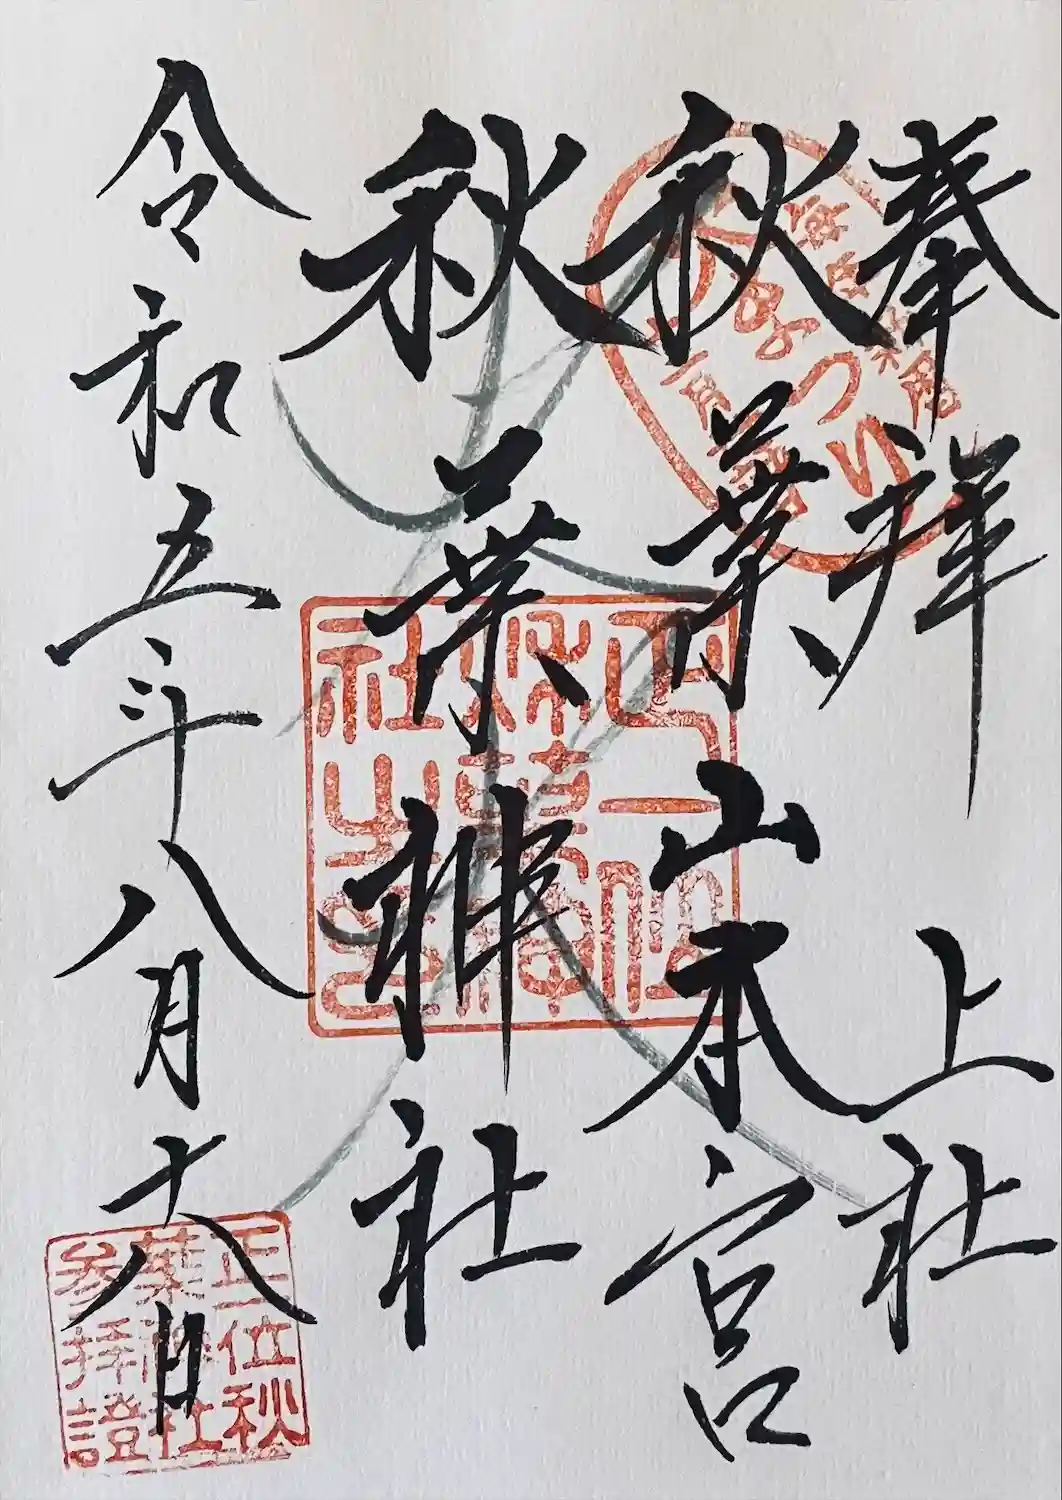 奉拝 上社
秋葉山本宮
秋葉神社
令和五年八月十八日
正一位
秋葉神
社之
正一位秋
葉神社
参拝證